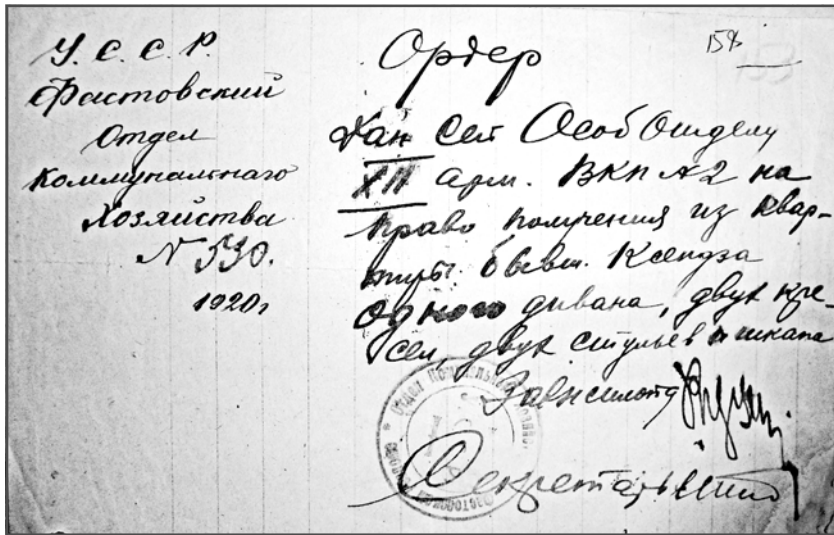 У. С. С. Р.
Фастовский
Отдел
Коммунального
Хозяйства
N 530.
1920г
158
Ордер
Дан сей Особ Отделу
XII арм. ВКП №2 на
право получения из квар-
тиры бывш. Ксендза
одного дивана, двух кре-
сел, двух стульев и шкапа
Секретарь
Отдел Коммунальн Хозяйс